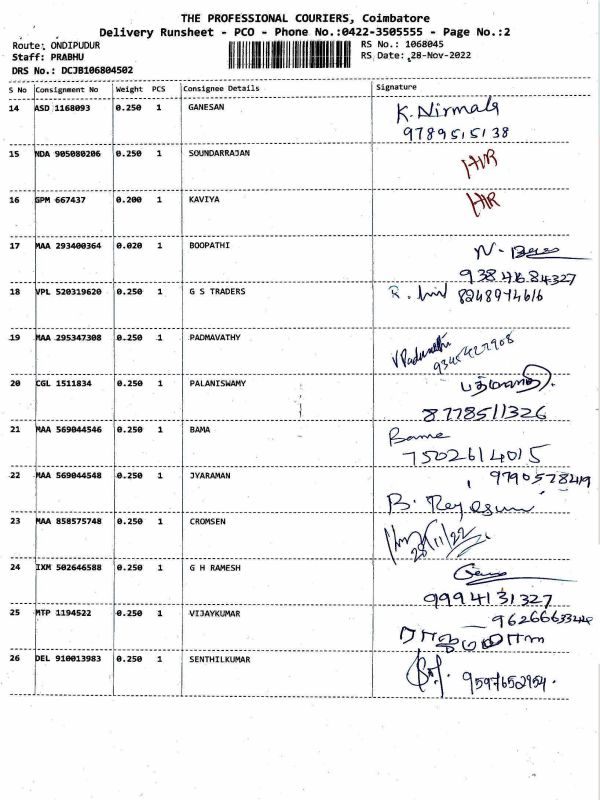 THE PROFESSIONAL COURIERS, Coimbatore
Delivery Runsheet - PCO - Phone No.:0422-3505555 - Page No.:2
Route: ONDIPUDUR RS No.: 1068045
Staff: PRABHU RS Date: 28-Nov-2022
DRS No.: DCJB106804502
S No Consignment No Weight PCS Consignee Details Signature
14 ASD 1168093 0.250 1 GANESAN K. Nirmala
9789515138
15 NDA 905080206 0.250 1 SOUNDARRAJAN H/R
16 GPM 667437 0.200 1 KAVIYA H/R
17 MAA 293400364 0.020 1 BOOPATHI N.
9384684327
18 VPL 520319620 0.250 1 G S TRADERS R. 8248974616
19 MAA 295347308 0.250 1 PADMAVATHY
9345427908
20 CGL 1511834 0.250 1 PALANISWAMY
8778511326
21 MAA 569044546 0.250 1 BAMA Bama
7502614015
22 MAA 569044548 0.250 1 JYARAMAN 9790578419
B.
23 MAA 858575748 0.250 1 CROMSEN
28/11/22
24 IXM 502646588 0.250 1 G H RAMESH
9994131327
25 MTP 1194522 0.250 1 VIJAYKUMAR
26 DEL 910013983 0.250 1 SENTHILKUMAR 9597652954.